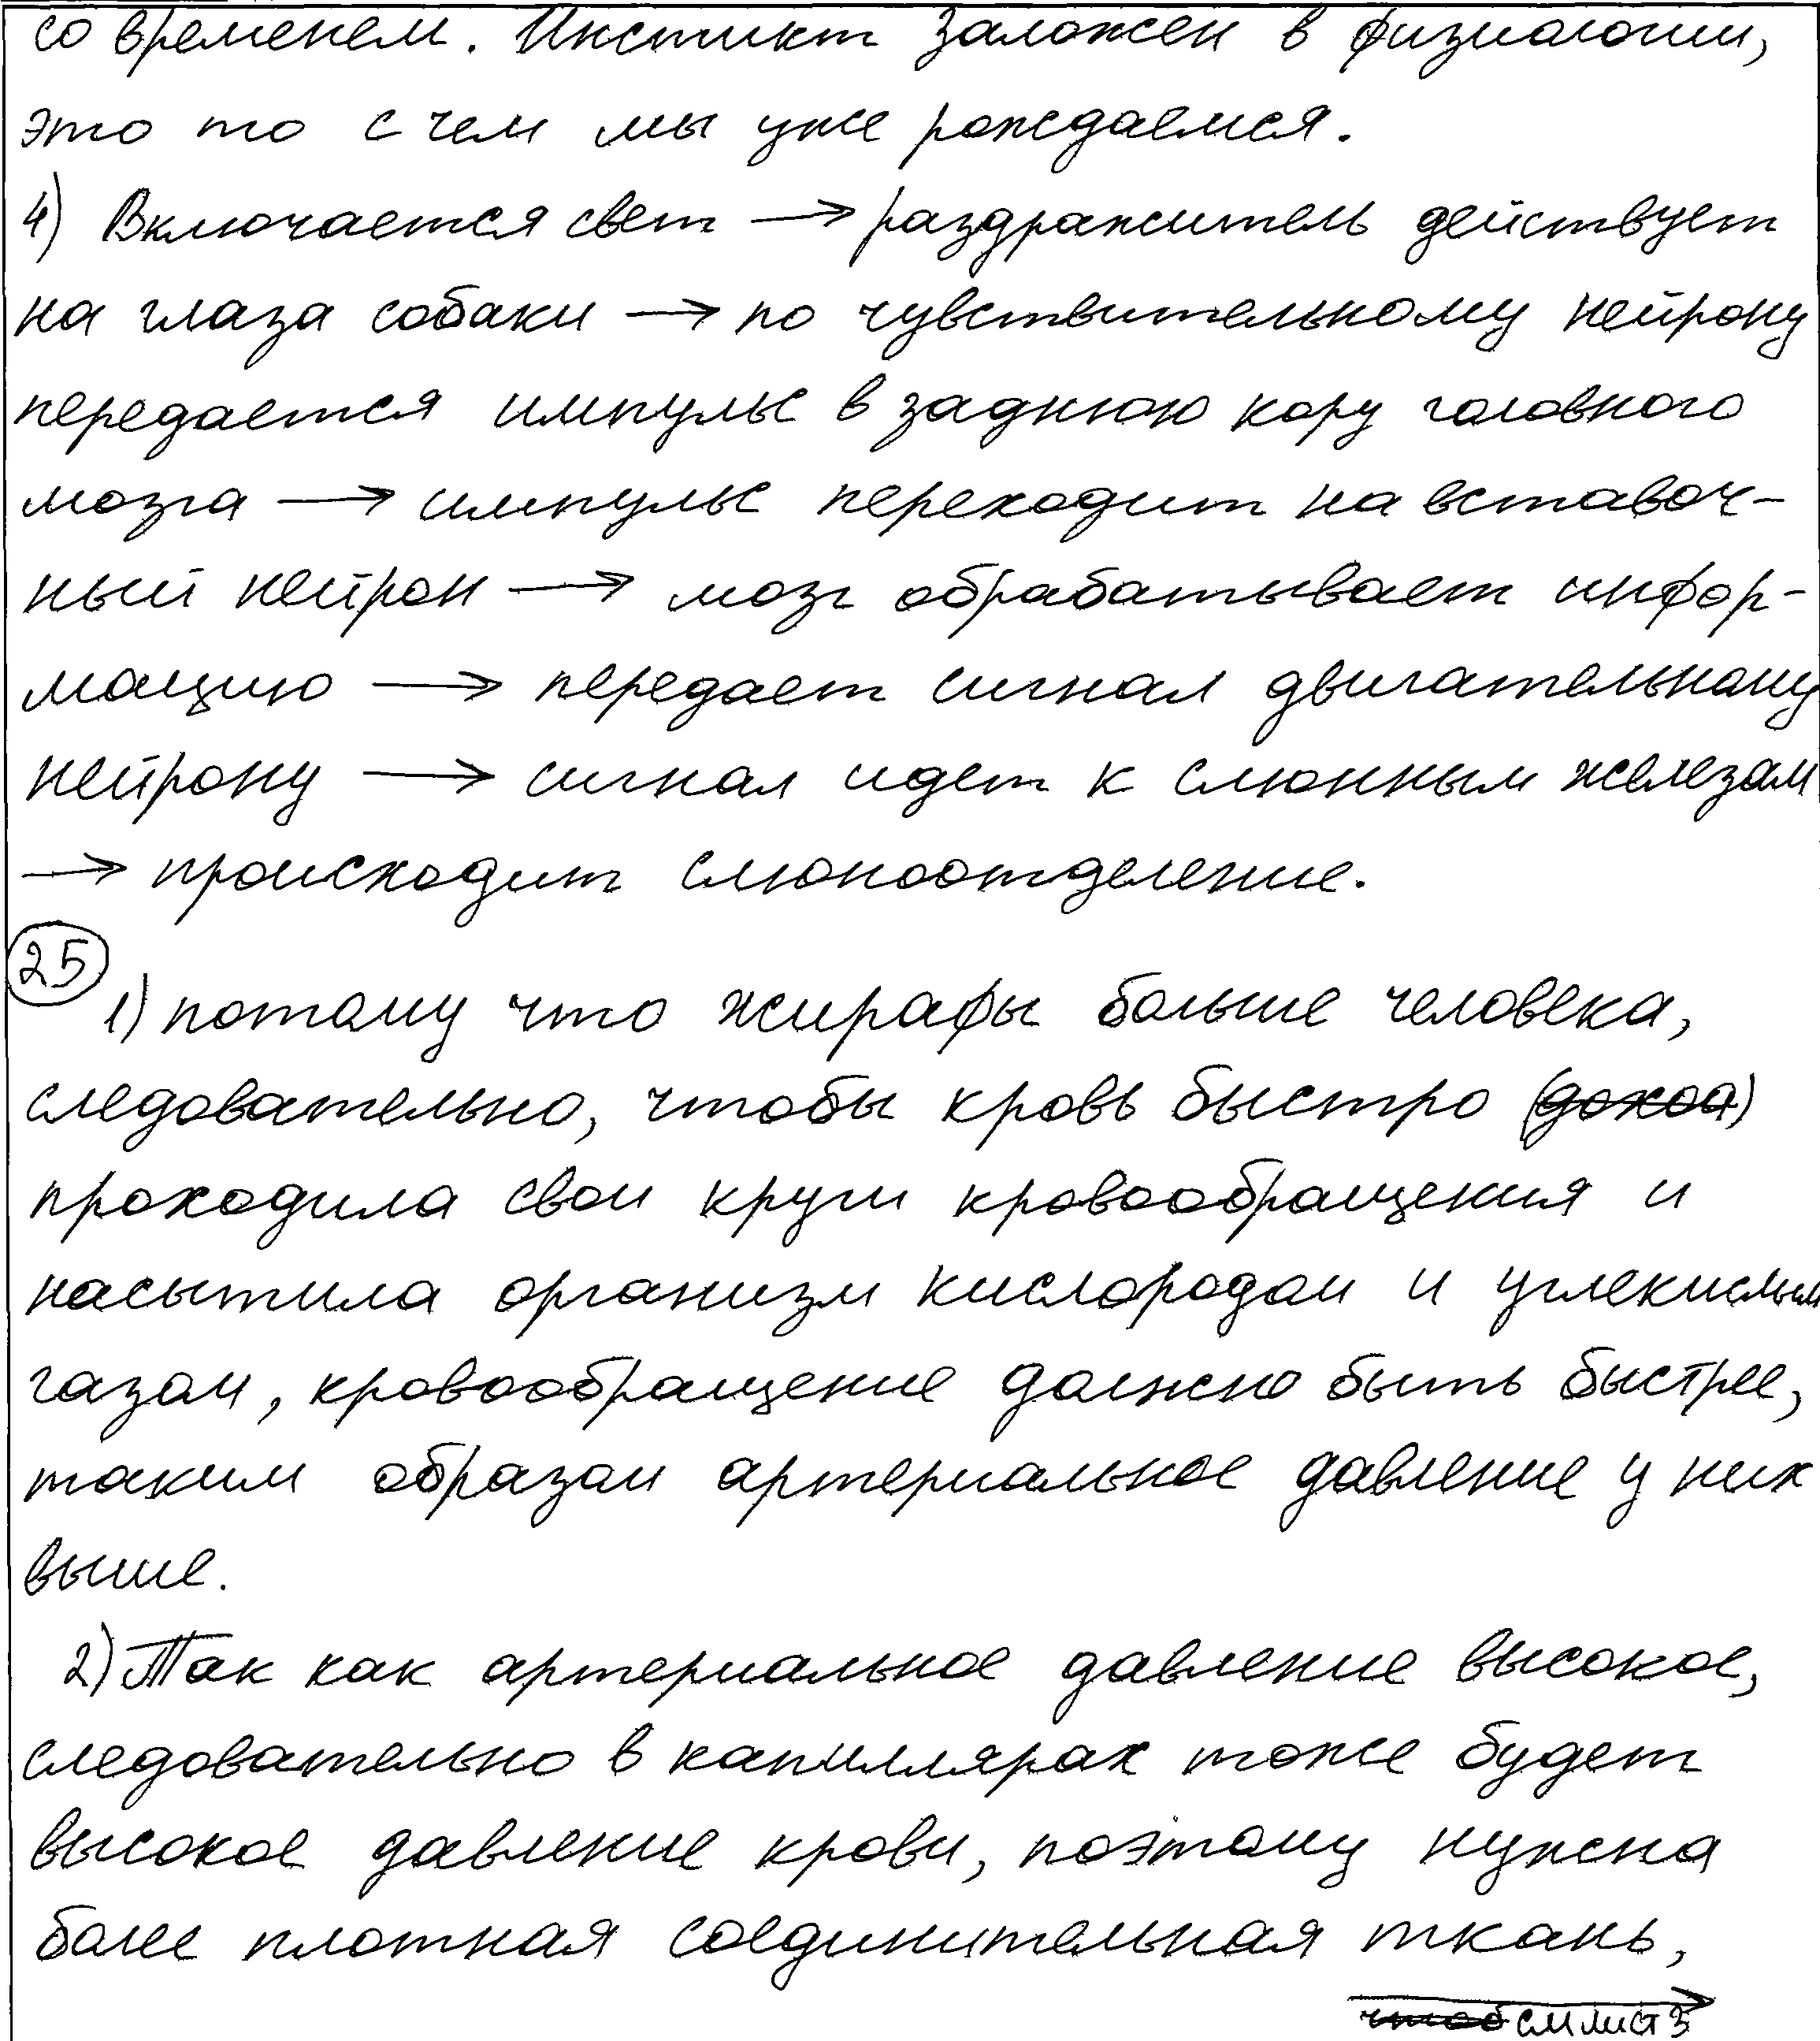 со временем. Инстинкт заложен в физиологии,
это то с чем мы уже рождаемся.
4) Включается свет → раздражитель действует
на глаза собаки → по чувствительному нейрону
передается импульс в заднюю кору головного
мозга → импульс переходит на вставоч-
ный нейрон → мозг обрабатывает инфор-
мацию → передает сигнал двигательному
нейрону → сигнал идет к слюнным железам
→ происходит слюноотделение.
25
1) потому что жирафы больше человека,
следовательно, чтобы кровь быстро (доход)
проходила свои круги кровообращения и
насытила организм кислородом и углекислым
газом, кровообращение должно быть быстрее,
таким образом артериальное давление у них
выше.
2) Так как артериальное давление высокое,
следовательно в капиллярах тоже будет
высокое давление крови, поэтому нужна
более плотная соединительная ткань,
чтоб см лист 3